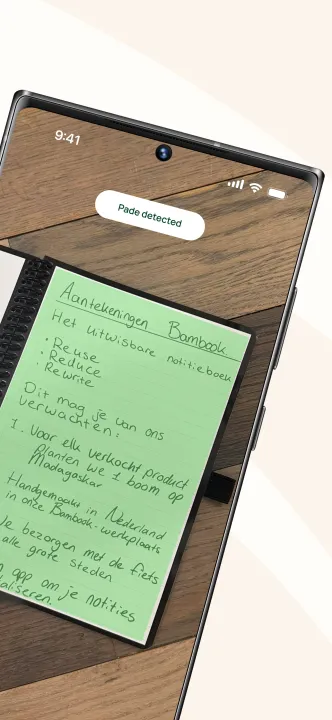 9:41
Pade detected
Aantekeningen Bambook
Het uitwisbare notitieboek
· Reuse
· Reduce
· Rewrite
Dit mag je van ons
verwachten:
1. Voor elk verkocht product
planten we 1 boom op
Madagaskar
Handgemaakt in Nederland
in onze Bambook-werkplaats
bezorgen met de fiets
alle grote steden
app om je notities